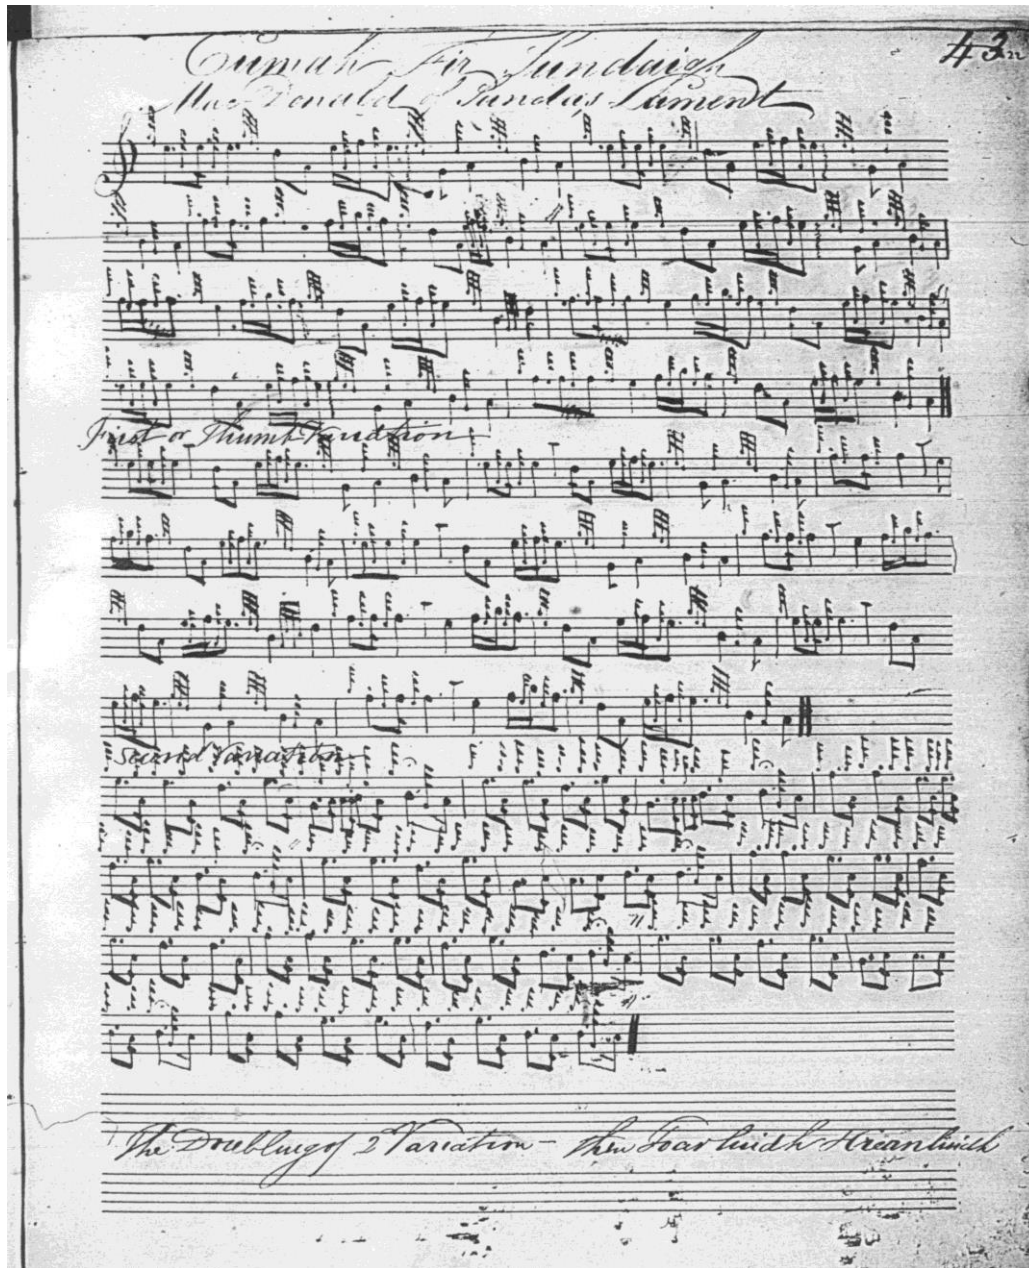 Cumah Fir Sundaigh
43
MacDonald of Sanda's Lament
First or Thumb Variation
Second Variation
The Doubling of 2 Variation - then Taorluidh &